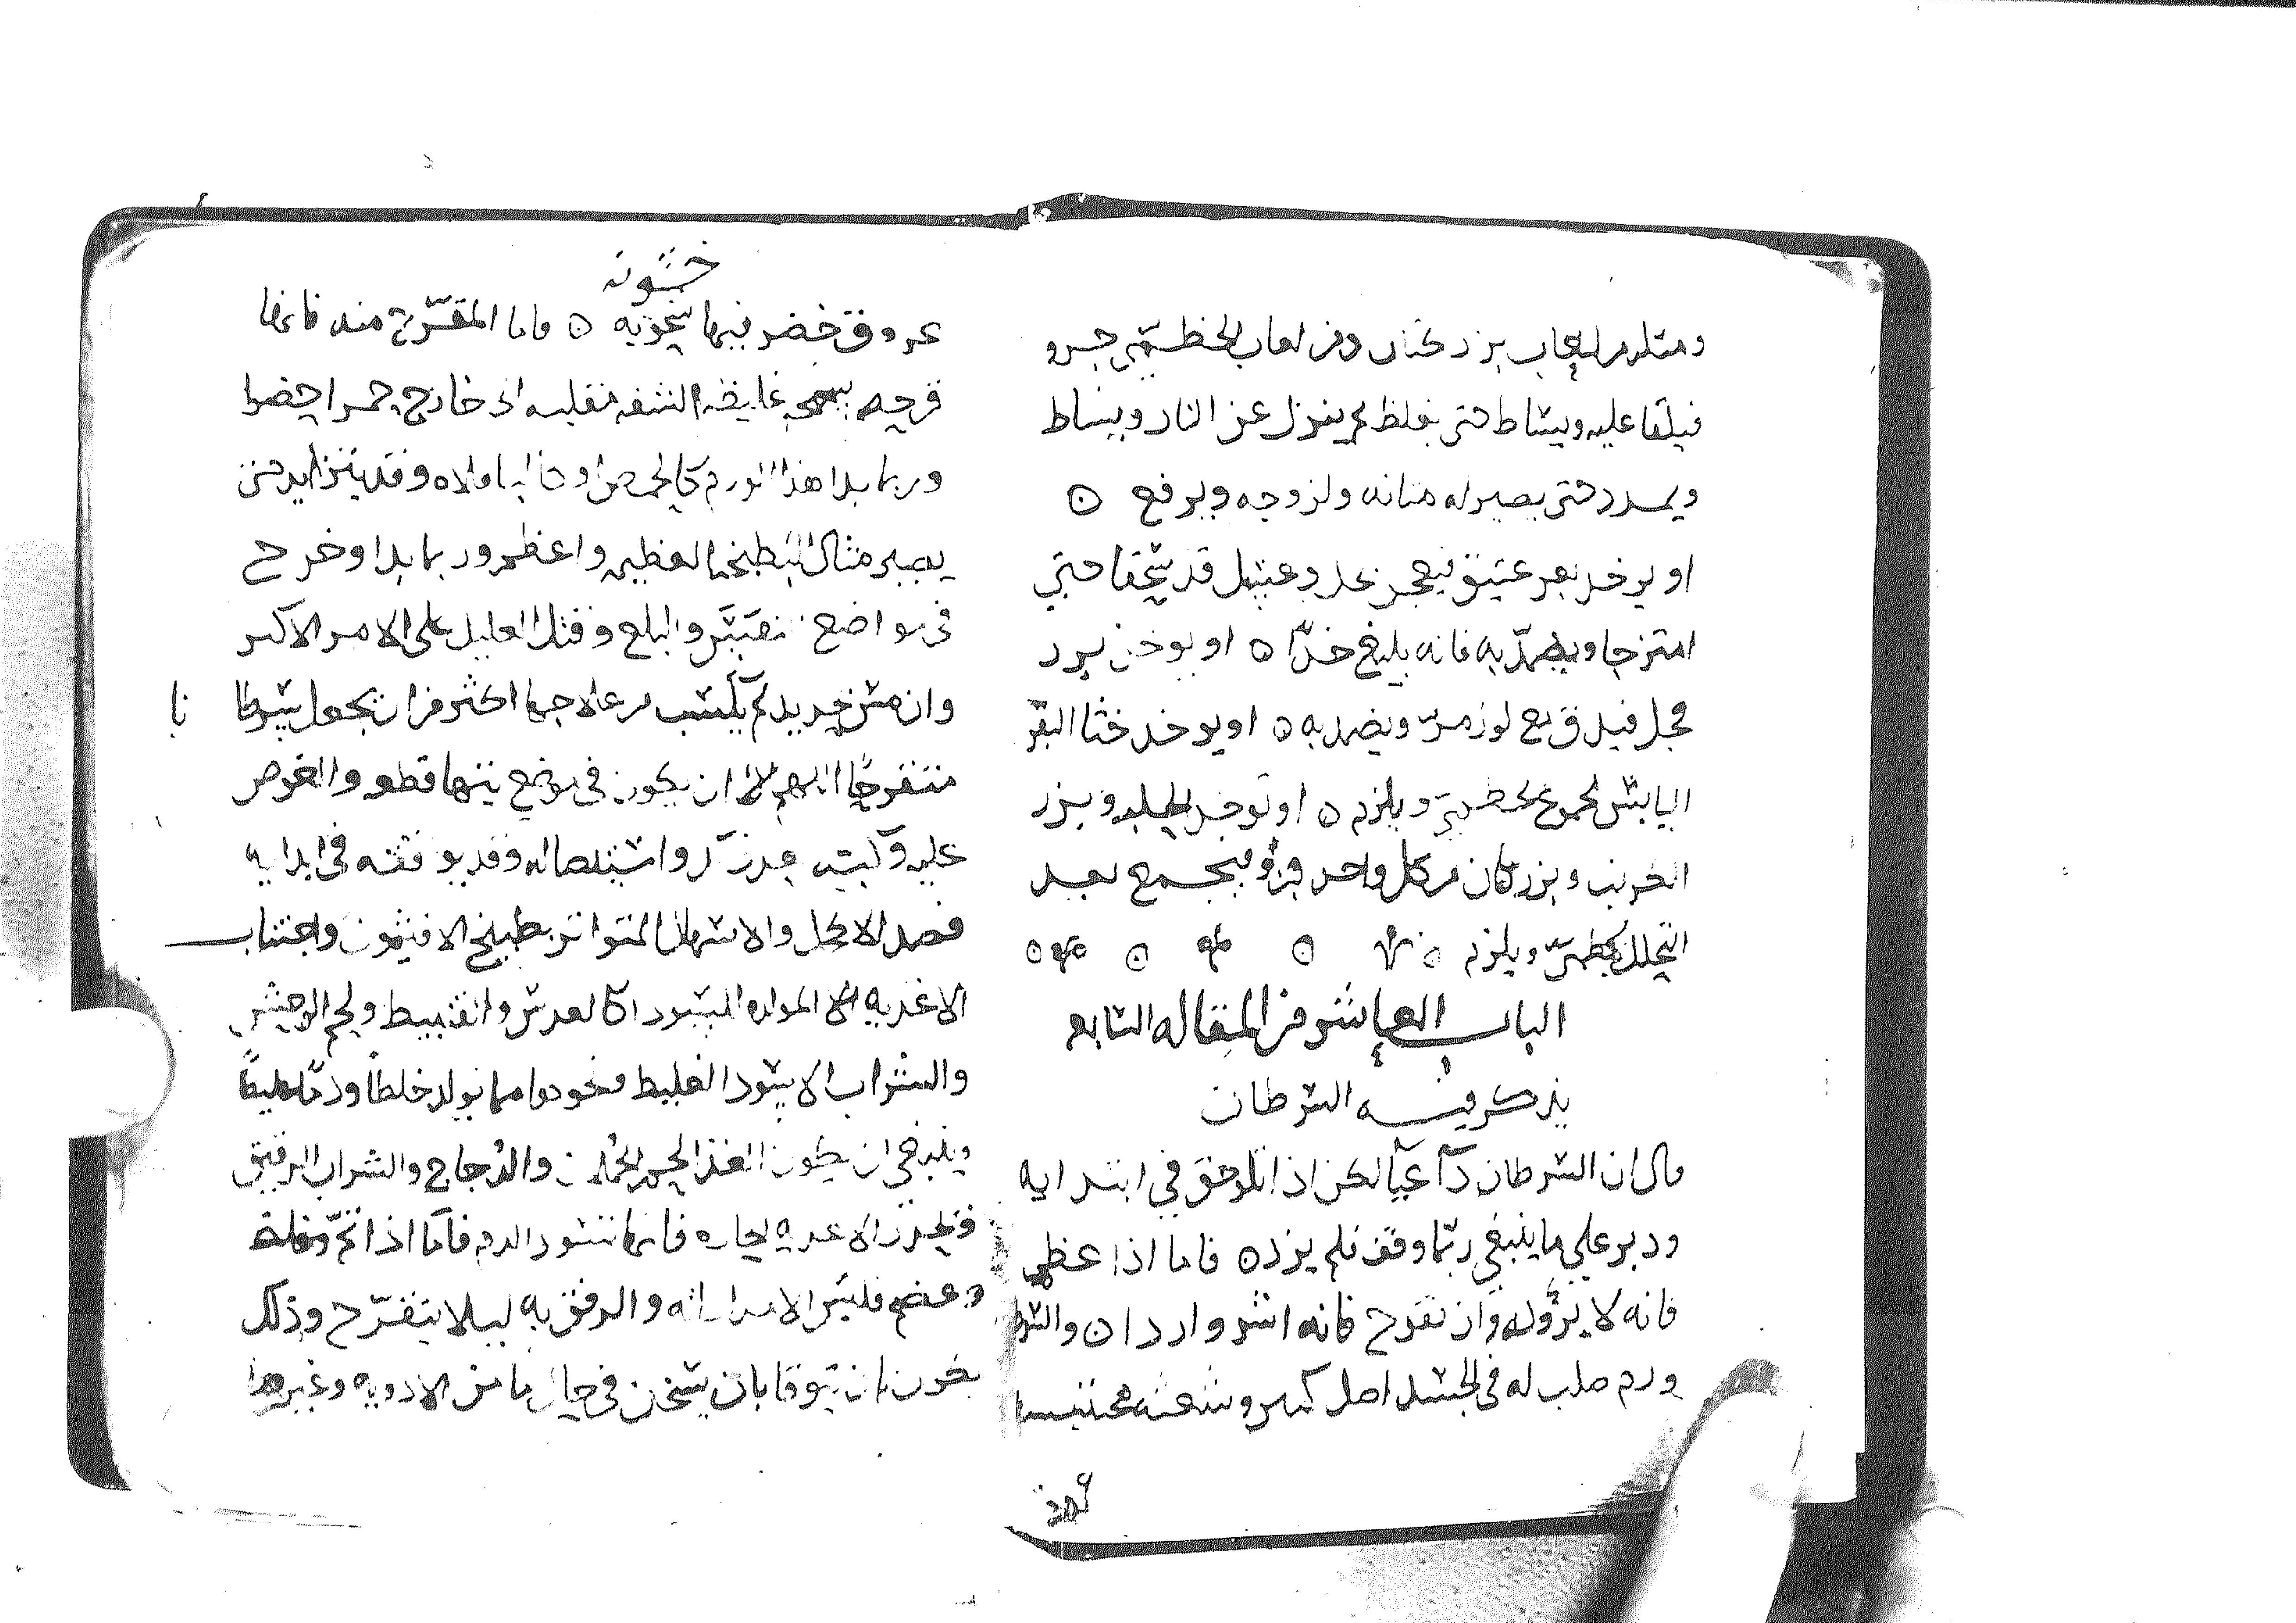 ومثله من لعاب بزر كتان ومن لعاب الخطمى جزو
فيلقا عليه ويساط حتى يغلظ ثم ينزل عن النار ويساط
ويمدد حتى يصير له متانه ولزوجه ويرفع ه
او يوخذ بعر عتيق فيعجن بخل وعسل قد سحقا حتى
امتزجا ويضمد به فانه بليغ جدا ه او يوخذ بزر
فجل فيدق مع لوز مر ويضمد به ه او يوخذ خثا البقر
اليابس مجموع بخطمى ويلزم ه او توخذ الحلبه وبزر
وبزر كتان من كل واحد جزو فيجمع بعد
ويلزم ه
الباب العاشر من المقاله السابعه
يذكر فيه السرطان
قال ان السرطان دآ عيآ لكن اذا تلوحق فى ابتدايه
ودبر على ما ينبغى ربما وقف فلم يزد ه فاما اذا عظم
فانه لا برو له وان تقرح فانه اشر واردا ه والسر
ورم صلب له فى الجسد اصل كبير
خشونه
عروق خضر فيها ه واما المتقرح منه فانها
قرحه سمجه غليظه الشفه منقلبه الى خارج حمرا خضرا
وربما بدا هذا الورم كالحمص او كالباقلاه وقد يتزايد حتى
يصير مثال البطيخه العظيمه واعظم وربما بدا وخرج
فى مواضع والبلع وقتل العليل على الامر الاكثر
وان مس بحديد لم يكسب من علاجها اكثر من ان يجعل سرطا نا
متقرحا اللهم الا ان يكون فى موضع يتهيا قطعه والغوص
عليه واستيصاله وقد يوقفه فى ابدايه
فصد الاكحل والاسهال المتواتر بطبيخ الافثيمون واجتناب
الاغذيه المولده للسودا كالعدس والقنبيط ولحم الوحش
والشراب الاسود الغليظ ونحوها مما يولد خلطا ودما غليظا
وينبغى ان يكون الغذا لحم الحملان والدجاج والشراب الرقيق
وتحذر الاغذيه الحاره فانها تسود الدم فاما اذا تم
وعظم فليس الا مداراته والرفق به ليلا يتقرح وذلك
يكون بان يتوقا بان يسخن فى حال ما من الادويه وغيرها